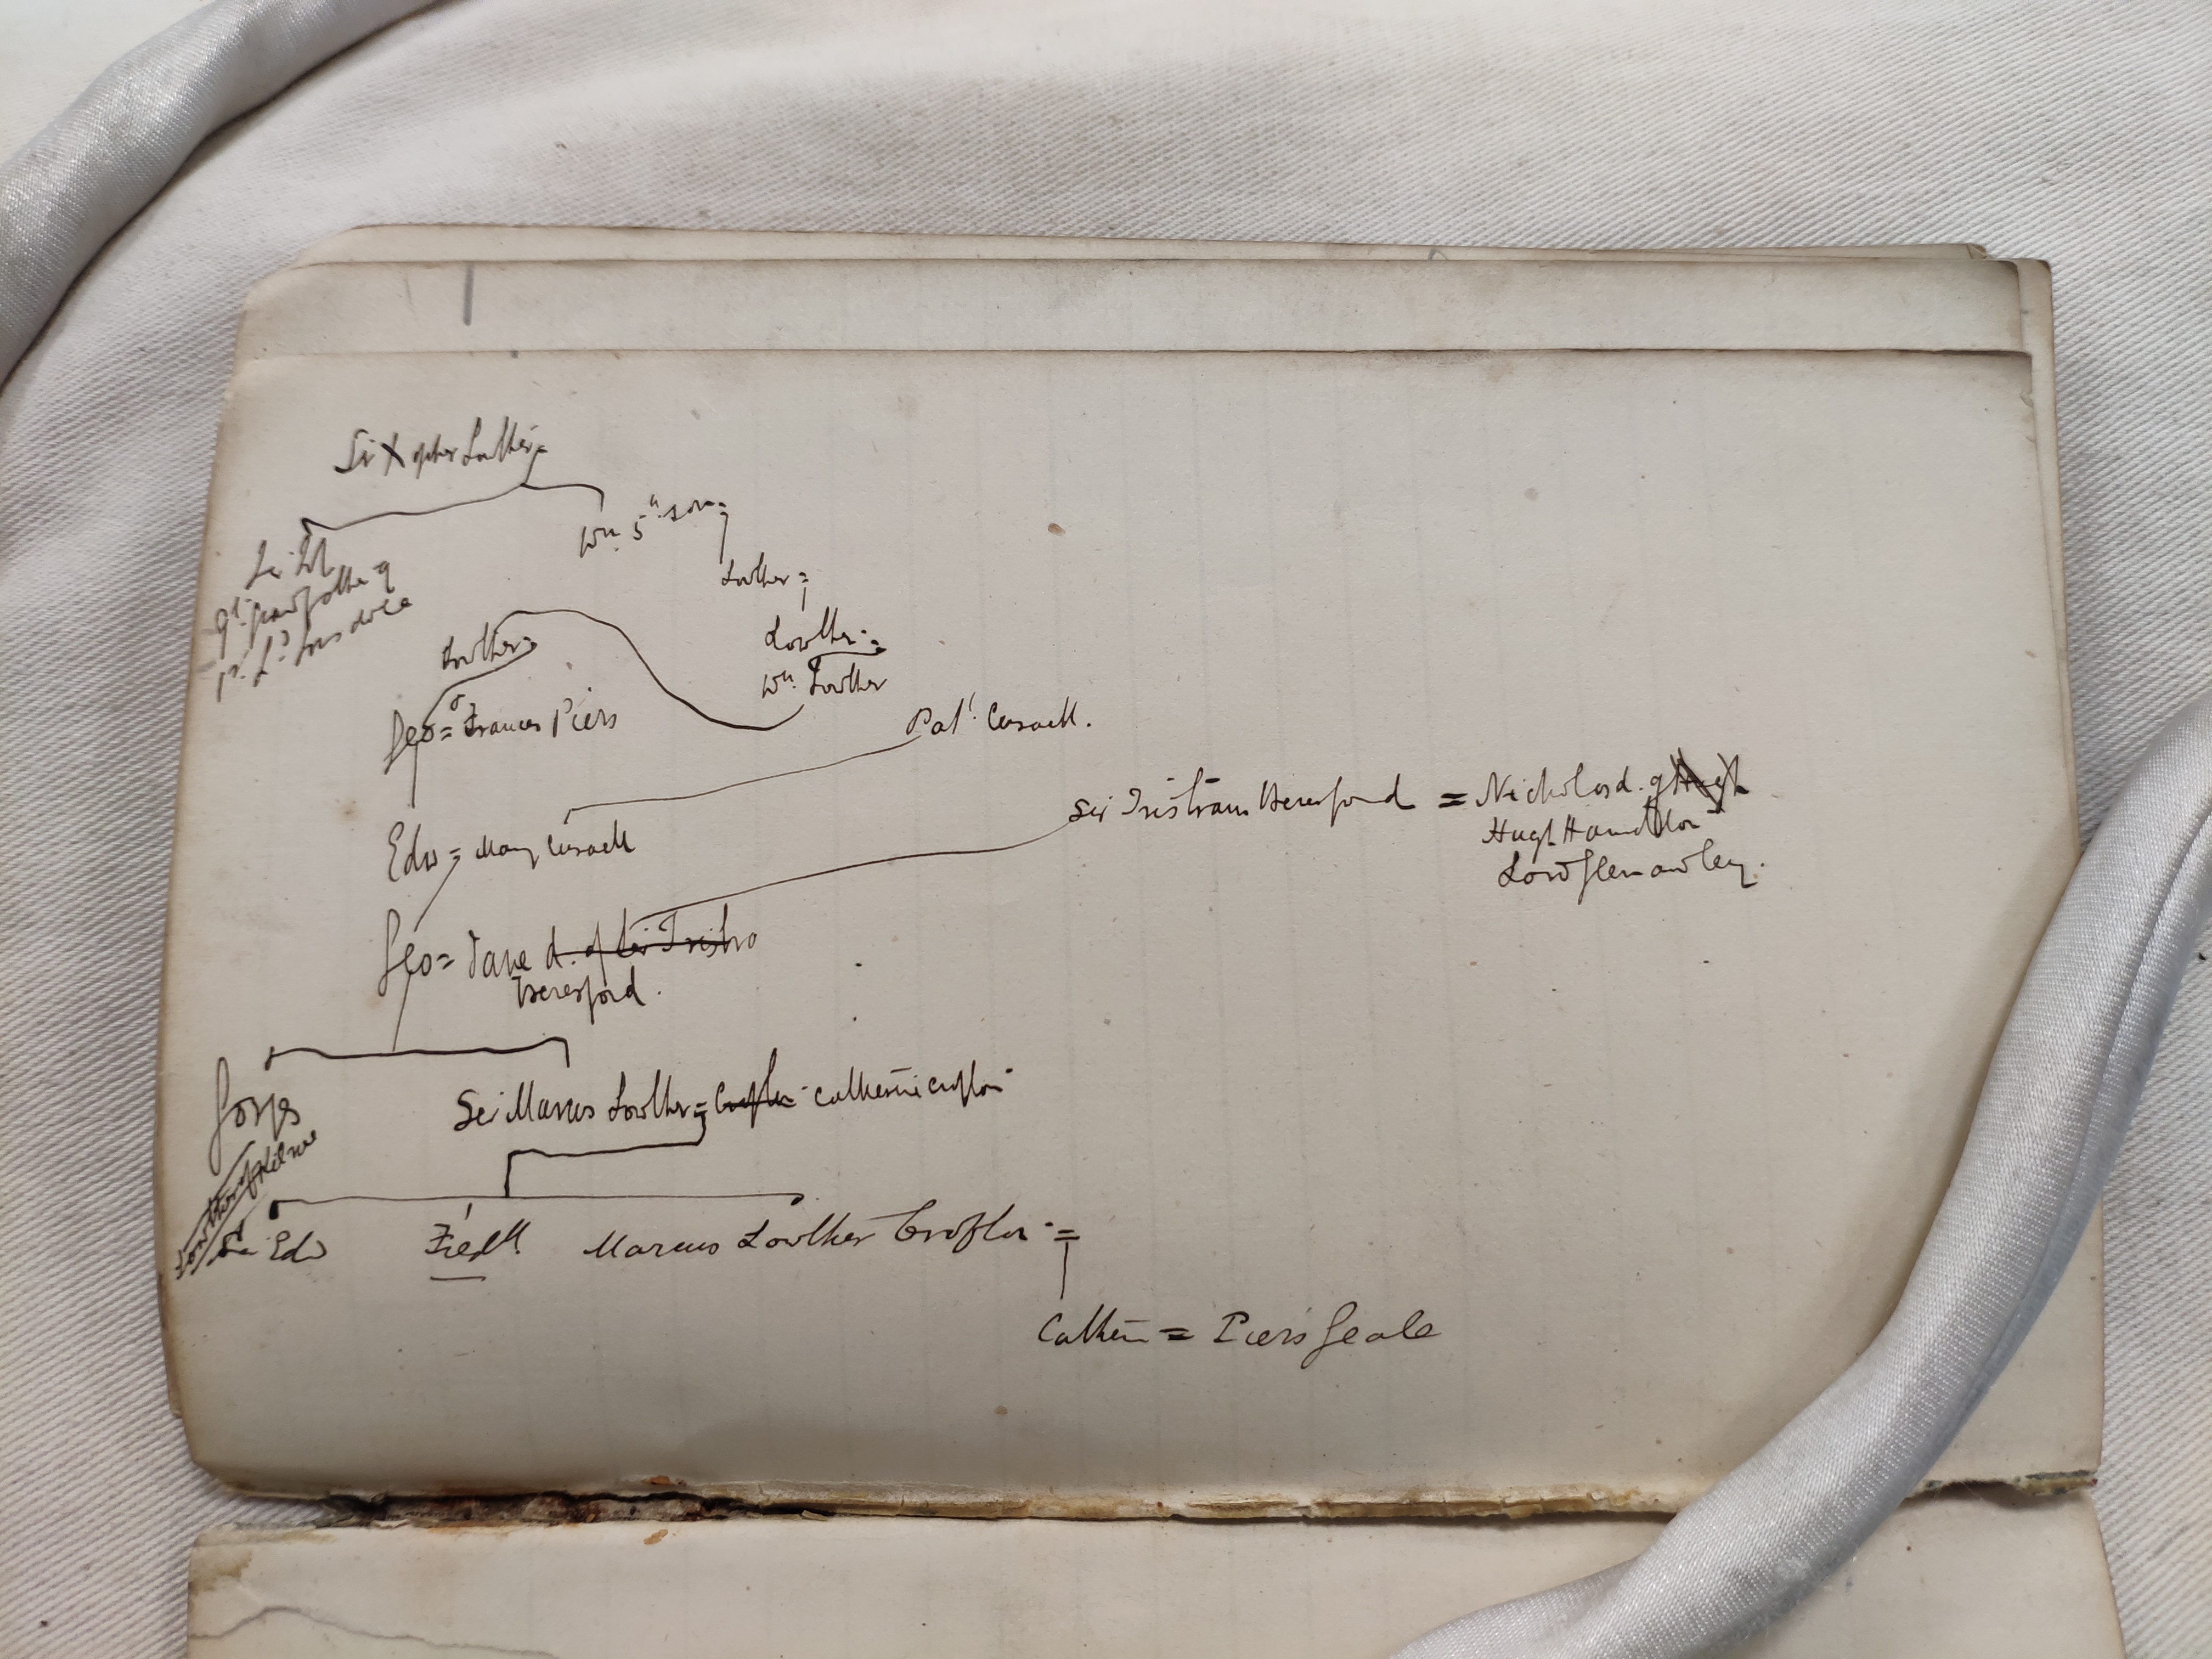 Sir Xopher Lowther =
Wm. 5th son =
Sir
gt. grandfather of
1st Ld. Lonsdale
Lowther =
Lowther =
Lowther =
Wm. Lowther
Geo = Frances Piers
Pat. Cusack.
Sir Tristram Beresford = Nichola d. of Hugh
Hugh Hamilton
Lord Glenawley.
Edw = Mary Cusack
Geo = Jane d. of Sir Tristro
Beresford.
Gorges
Sir Marcus Lowther = Crofton Catherine Crofton
Lowther of Kilrue
Sir Edw Fredk Marcus Lowther Crofton =
Cathern = Piers Geale